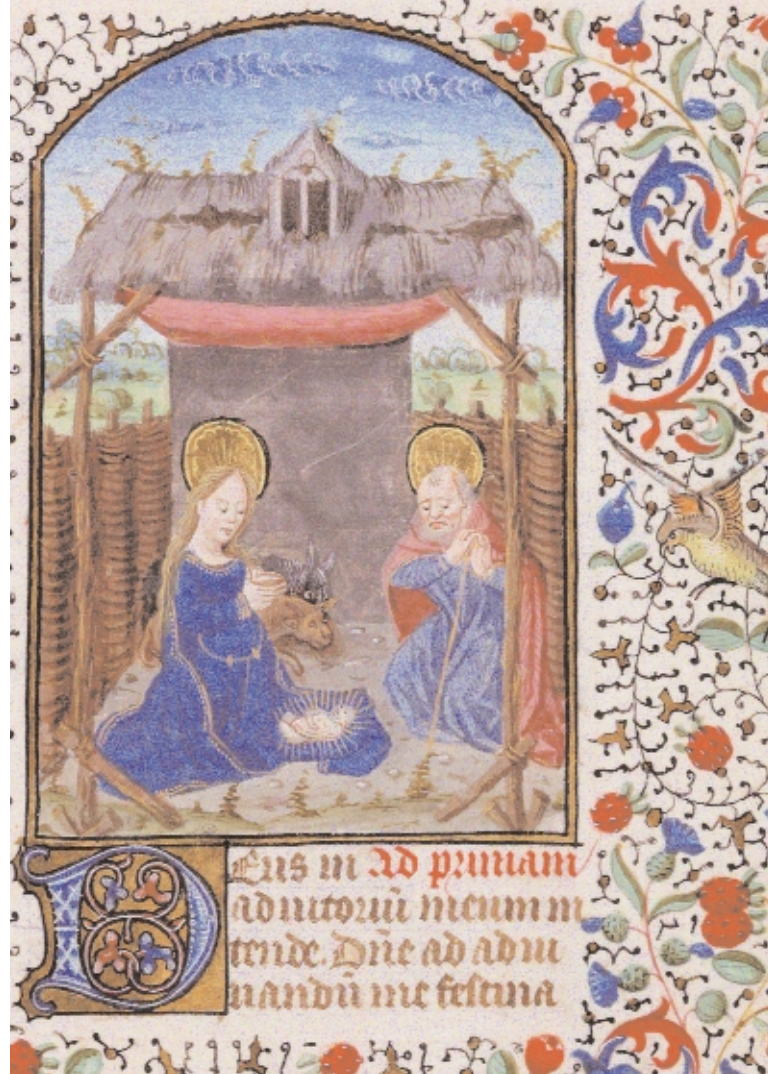 Deus in Ad primam
adiutoriū meum in
tende. Dñe ad adiu
uandū me festina